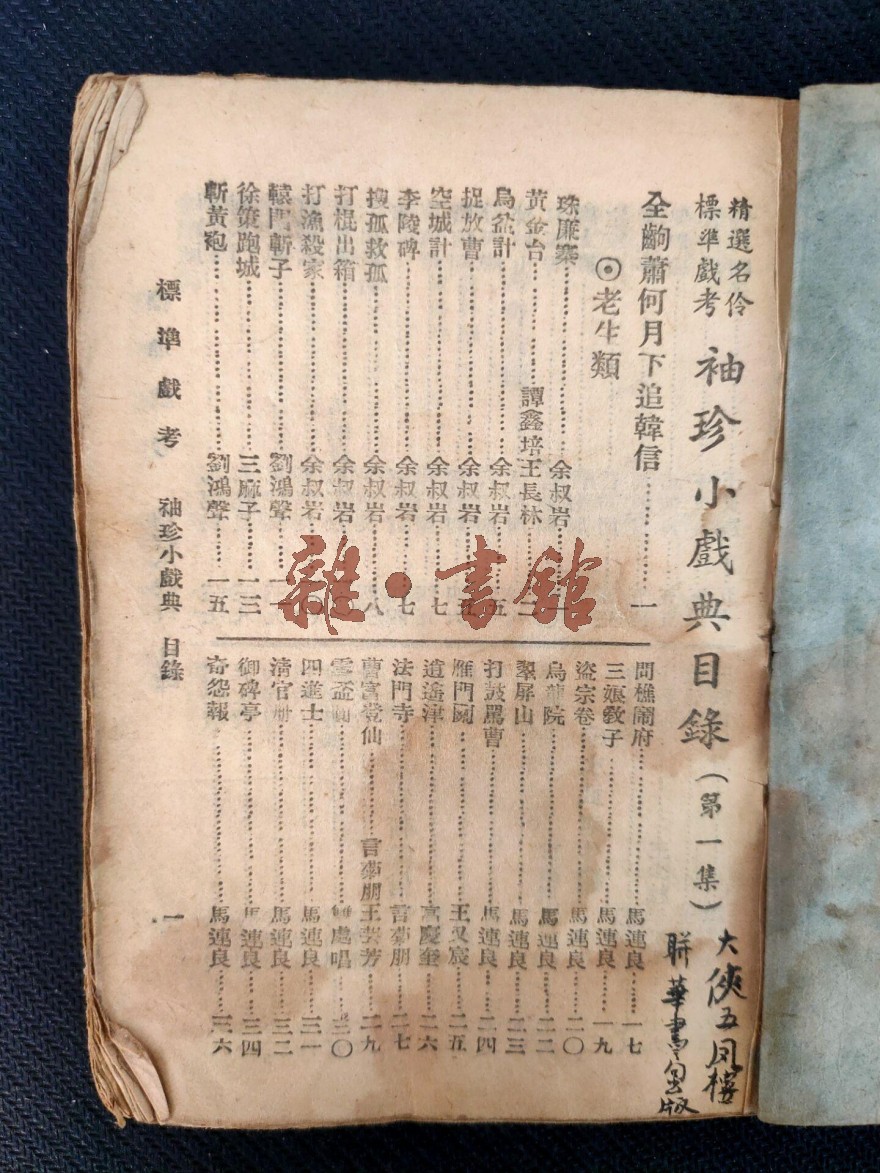 精選名伶
標準戲考
袖珍小戲典目錄（第一集）
大俠五凤樓
聨華書局出版
全齣蕭何月下追韓信 一
⊙老生類
珠廉寨 余叔岩 一
黃金台 譚鑫培王長林 三
烏盆計 余叔岩 五
捉放曹 余叔岩 五
空城計 余叔岩 七
李陵碑 余叔岩 七
搜孤救孤 余叔岩 八
打棍出箱 余叔岩
打漁殺家 余叔岩
轅門斬子 劉鴻聲
徐策跑城 三麻子 一三
斬黃袍 劉鴻聲 一五
問樵鬧府 馬連良 一七
三娘敎子 馬連良 一九
盜宗卷 馬連良 二〇
烏龍院 馬連良 二二
翠屏山 馬連良 二三
打鼓罵曹 馬連良 二四
雁門關 王又宸 二五
逍遙津 高慶奎 二六
法門寺 言菊朋 二七
曹富登仙 言菊朋王芸芳 二九
雪盃圓 雙處唱 三〇
四進士 馬連良 三一
淸官册 馬連良 三二
御碑亭 馬連良 三四
奇怨報 馬連良 三六
標準戲考 袖珍小戲典 目錄 一
雜·書館